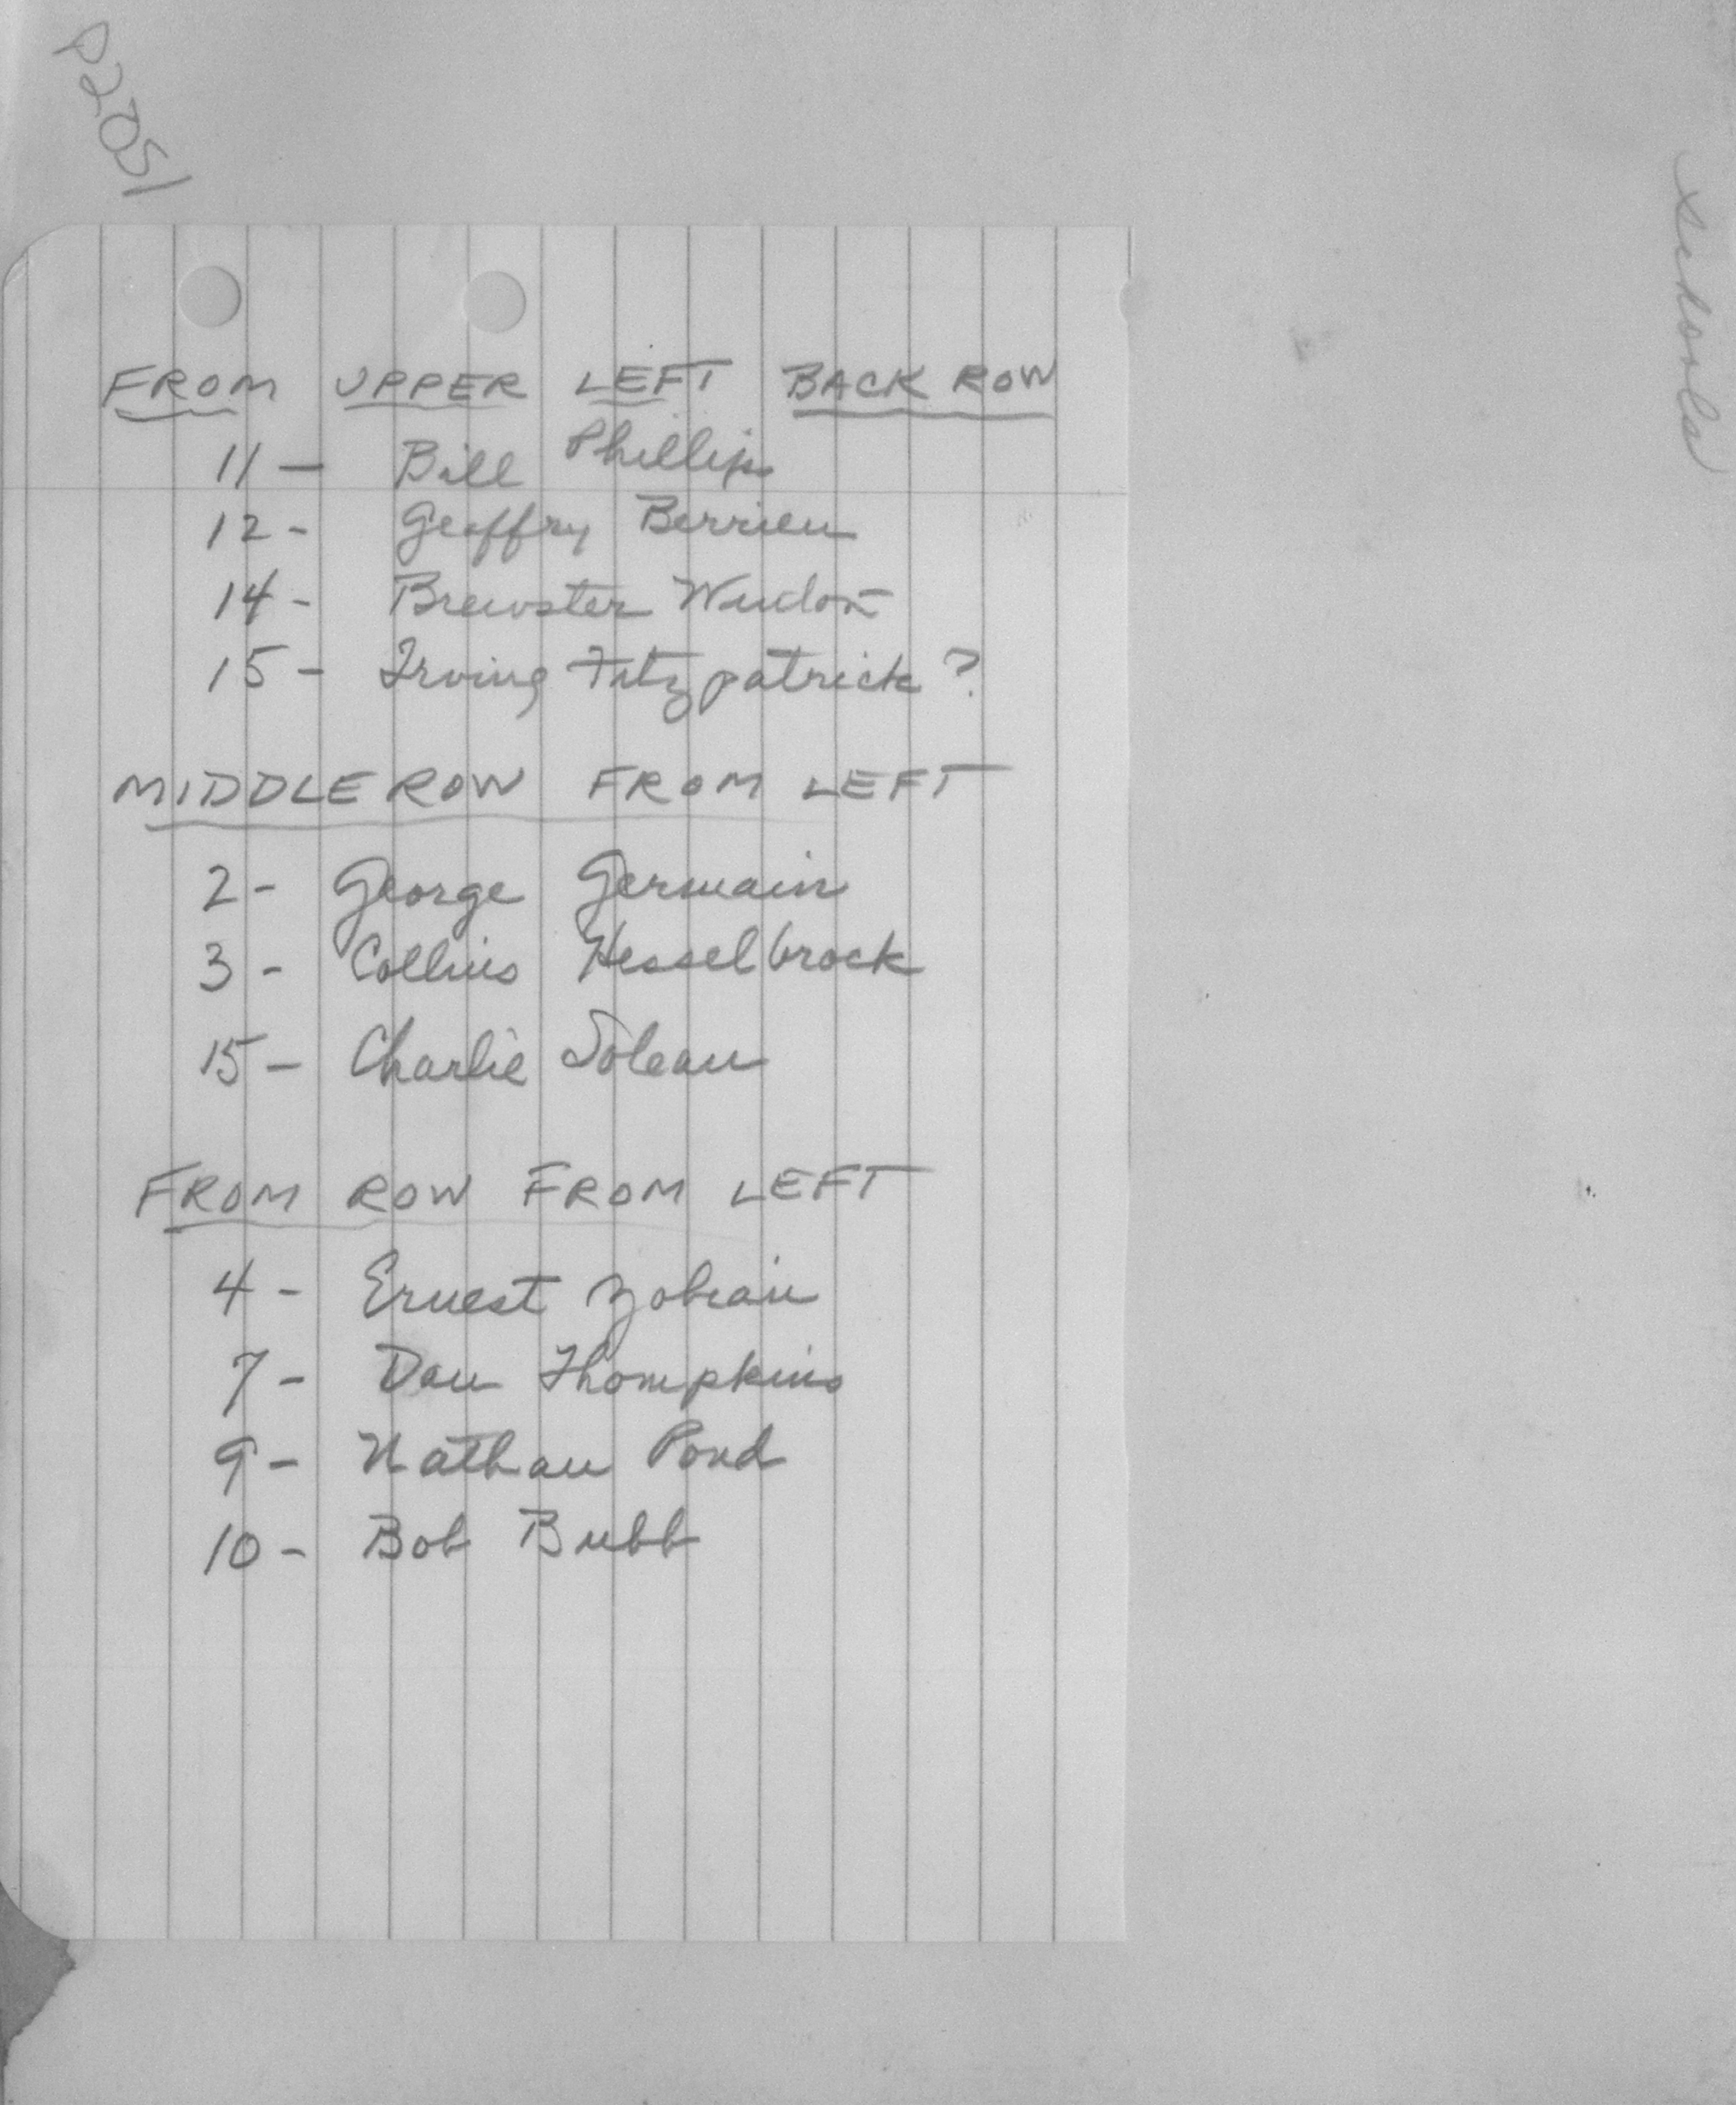 P2051
FROM UPPER LEFT BACK ROW
11 - Bill Phillips
12 - Geoffry Berrien
14 - Brewster
15 - Irving Fitzpatrick ?
MIDDLE ROW FROM LEFT
2 - George Germain
3 - Collins Hesselbrock
15 - Charlie Soleau
FROM ROW FROM LEFT
4 - Ernest
7 - Dan Thompkins
9 - Nathan Pond
10 - Bob Bubb